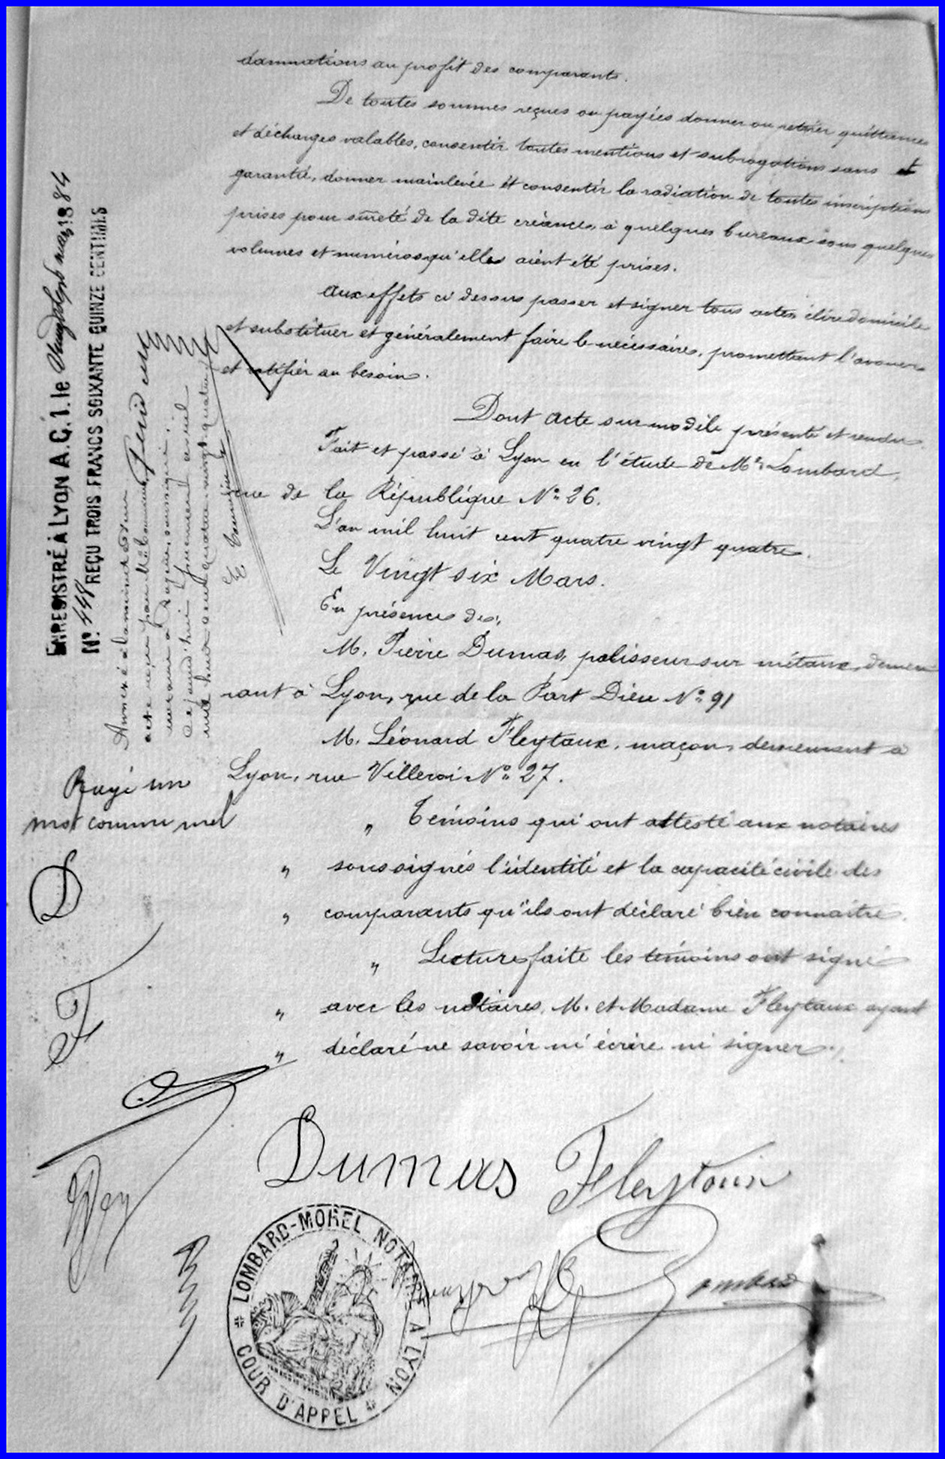 damnations au profit des comparants.
De toutes sommes reçues ou payées donner ou retirer quittances
et décharges valables, consentir toutes mentions et subrogations sans
garantie, donner mainlevée et consentir la radiation de toutes inscriptions
prises pour sûreté de la dite créances, à quelques bureaux sous quelques
volumes et numéros qu'elles aient été prises.
Aux effets ci dessus passer et signer tous actes élire domicile
et substituer et généralement faire le nécessaire, promettant l'avouer
et ratifier au besoin.
Dont acte sur modèle présenté et rendu
Fait et passé à Lyon en l'étude de Me Lombard,
rue de la République No 26.
L'an mil huit cent quatre vingt quatre.
Le Vingt six Mars.
En présence de:
M. Pierre Dumas, polisseur sur métaux, demeu
rant à Lyon, rue de la Part Dieu No 91
M. Léonard Fleytoux, maçon, demeurant à
Lyon, rue Villeroi No 27.
" Témoins qui ont attesté aux notaires
" soussignés l'identité et la capacité civile des
" comparants qu'ils ont déclaré bien connaître.
" Lecture faite les témoins ont signé
" avec les notaires, M. et Madame Fleytoux ayant
" déclaré ne savoir ni écrire ni signer.
Dumas Fleytoux
Lombard
LOMBARD-MOREL NOTAIRE A LYON
COUR D'APPEL
ENREGISTRÉ À LYON A.C. 1. le Vingt sept mars 1884
No. 448 REÇU TROIS FRANCS SOIXANTE QUINZE CENTIMES
Annexé à la minute d'un
acte reçu par
notaire à soussigné
ce jourd'hui
mil huit cent quatre vingt quatre
Rayé un
mot comme nul
D
F